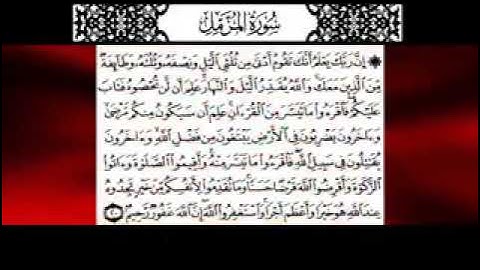 سُورَةُ الْمُزَّمِّلِ
۞ إِنَّ رَبَّكَ يَعْلَمُ أَنَّكَ تَقُومُ أَدْنَىٰ مِن ثُلُثَيِ ٱلَّيْلِ وَنِصْفَهُۥ وَثُلُثَهُۥ وَطَآئِفَةٌ
مِّنَ ٱلَّذِينَ مَعَكَ ۚ وَٱللَّهُ يُقَدِّرُ ٱلَّيْلَ وَٱلنَّهَارَ ۚ عَلِمَ أَن لَّن تُحْصُوهُ فَتَابَ
عَلَيْكُمْ ۖ فَٱقْرَءُوا۟ مَا تَيَسَّرَ مِنَ ٱلْقُرْءَانِ ۚ عَلِمَ أَن سَيَكُونُ مِنكُم مَّرْضَىٰ
وَءَاخَرُونَ يَضْرِبُونَ فِى ٱلْأَرْضِ يَبْتَغُونَ مِن فَضْلِ ٱللَّهِ ۙ وَءَاخَرُونَ
يُقَٰتِلُونَ فِى سَبِيلِ ٱللَّهِ ۖ فَٱقْرَءُوا۟ مَا تَيَسَّرَ مِنْهُ ۚ وَأَقِيمُوا۟ ٱلصَّلَوٰةَ وَءَاتُوا۟
ٱلزَّكَوٰةَ وَأَقْرِضُوا۟ ٱللَّهَ قَرْضًا حَسَنًا ۚ وَمَا تُقَدِّمُوا۟ لِأَنفُسِكُم مِّنْ خَيْرٍ تَجِدُوهُ
عِندَ ٱللَّهِ هُوَ خَيْرًا وَأَعْظَمَ أَجْرًا ۚ وَٱسْتَغْفِرُوا۟ ٱللَّهَ ۖ إِنَّ ٱللَّهَ غَفُورٌ رَّحِيمٌۢ ٢٠